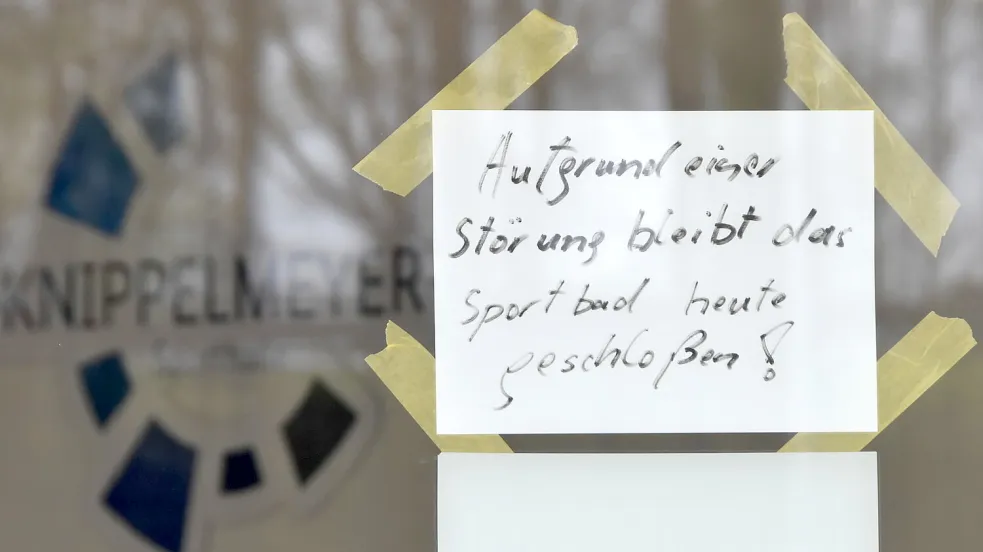 KNIPPELMEYER
Aufgrund einer
Störung bleibt das
Sportbad heute
geschloßen!